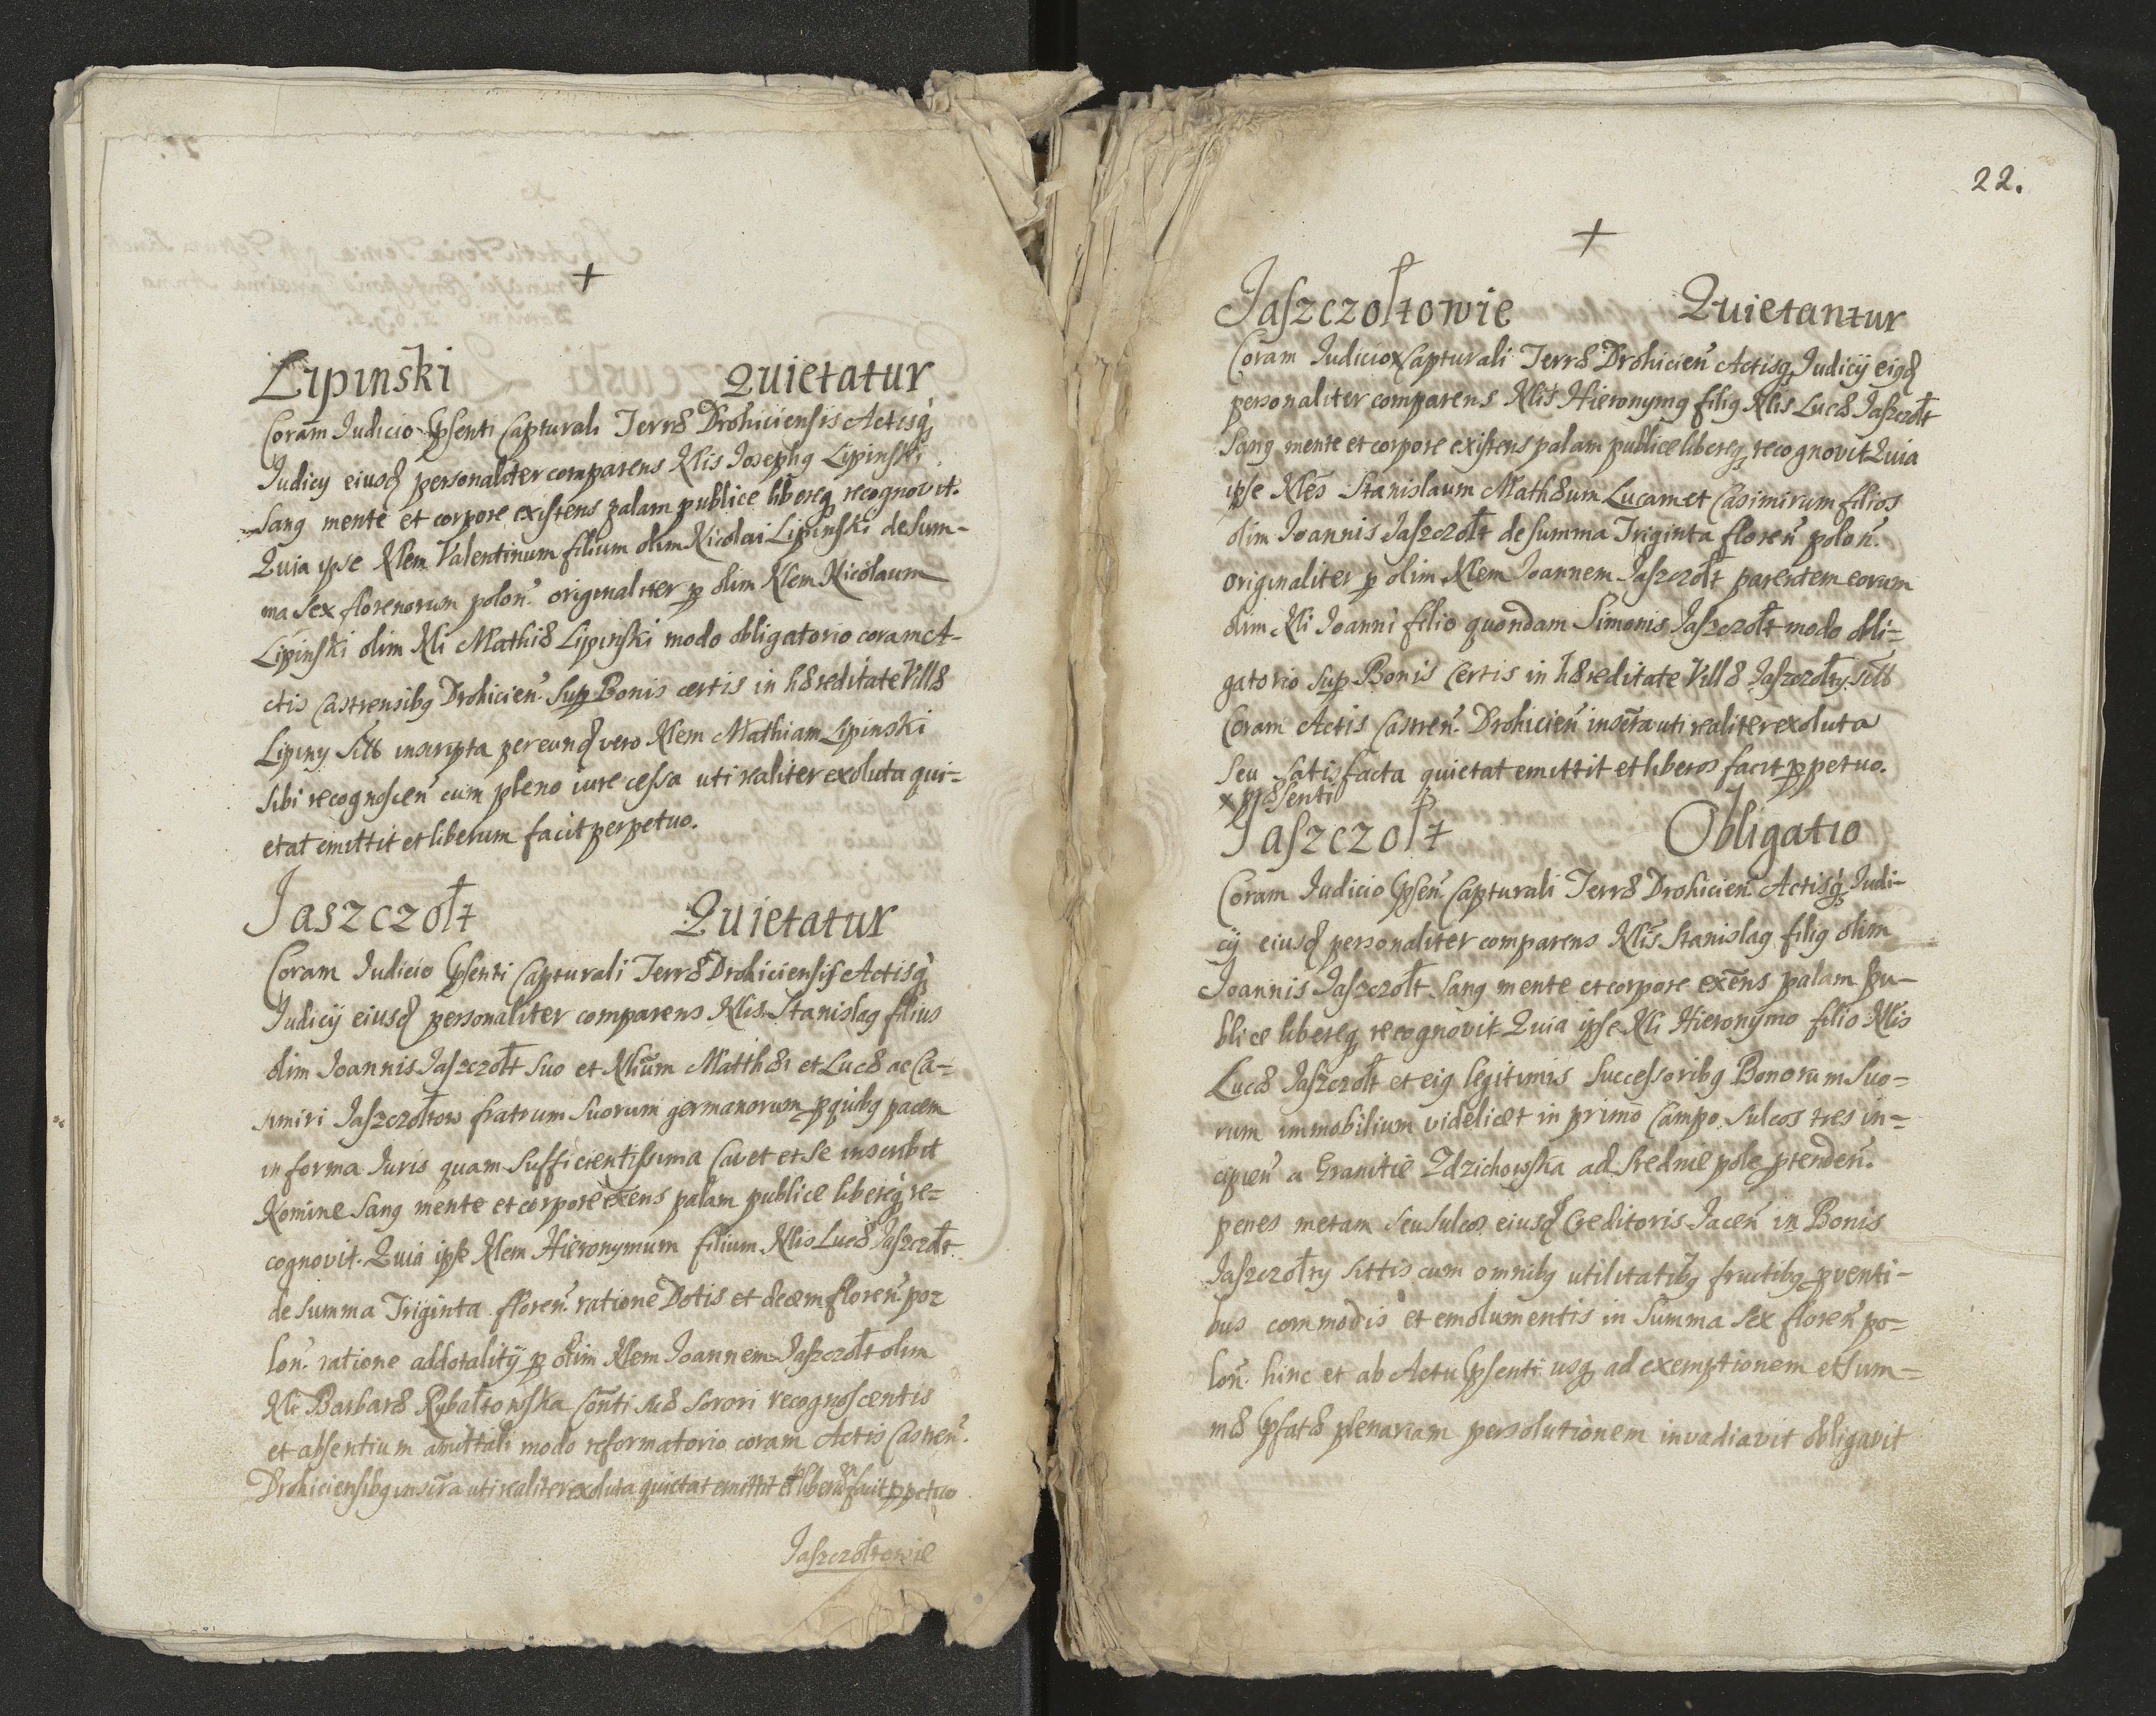 +
Lipinski Quietatur
Coram Judicio Ppsenti Capturali Terræ Drohiciensis Actisq
Judicy eiusd personaliter comparens Nlis Josephg Lipinski
Sang mente et corpore existens palam publice libereq recognovit.
Quia ipse Nlem Valentinum filium olim Nicolai Lipinski de Sum-
ma Sex florenorum polon. originaliter p olim Nlem Nicolaum
Lipinski olim Nli Mathiæ Lipinski modo obligatorio coram A-
ctis Castrensibg Drohicien. Sup Bonis certis in hæreditate Villæ
Lipiny Sitis inscripta per eund vero Nlem Mathiam Lipinski
sibi recognoscen cum pleno iure cessa uti realiter exoluta qui=
etat emittit et liberum facit perpetuo.
Jaszczołt Quietatur
Coram Judicio Ppsenti Capturali Terræ Drohiciensis Actisq
Judicij eiusd personaliter comparens Nlis Stanislag filius
olim Joannis Jaszczołt Suo et Nlium Matthæi et Lucæ ac Ca=
simiri Jaszczołtow fratrum Suorum germanorum p quibg pacem
in forma Juris quam Sufficientissima Cavet et Se inscribit
Nomine Sang mente et corpore exens palam publice libereq re=
cognovit. Quia ipse Nlem Hieronymum filium Nlis Lucæ Jaszczołt
de Summa Triginta floren. ratione Dotis et decem floren. po=
lon. ratione addotalitij p olim Nlem Joannem Jaszczołt olim
Nli Barbaræ Rybałtowska Conti Suæ Sorori recognoscentis
et absentium amittali modo reformatorio coram Actis Castren.
Drohiciensibg inscra uti realiter exoluta quietat emittit et liberum facit ppetuo
Jaszczołtowie
22.
+
Jaszczołtowie Quietantur
Coram Judicio x Capturali Terræ Drohicien Actisq Judicij eigd
personaliter comparens Nlis Hieronymg filig Nlis Lucæ Jaszczołt
Sang mente et corpore existens palam publice libereq recognovit Quia
ipse Nles Stanislaum Mathæum Lucam et Casimirum filios
olim Joannis Jaszczołt de Summa Triginta floren polon.
originaliter p olim Nlem Joannem Jaszczołt parentem eorum
olim Nli Joanni filio quondam Simonis Jaszczołt modo obli=
gatorio Sup Bonis Certis in hæreditate Villæ Jaszczołty Sitis
Coram Actis Castren. Drohicien inscra uti realiter exoluta
Seu Satisfacta quietat emittit et liberos facit ppetuo.
x pæsenti
Jaszczołt Obligatio
Coram Judicio Ppsen. Capturali Terræ Drohicien Actisq Judi-
cij eiusd personaliter comparens Nlis Stanislag filig olim
Joannis Jaszczołt Sang mente et corpore exens palam pu-
blice libereq recognovit Quia ipse Nli Hieronymo filio Nlis
Lucæ Jaszczołt et eig legitimis Successoribg Bonorum Suo=
rum immobilium videlicet in primo Campo Sulcos tres in=
cipien a Granitie Zdzichowska ad Srednie pole ptenden.
penes metam Seu Sulcos eiusd Creditoris Jacen in Bonis
Jaszczołty Sittis cum omnibg utilitatibg fructibg pventi-
bus commodis et emolumentis in Summa Sex floren po=
lon. hinc et ab Actu Ppsenti usq ad exemptionem et Sum=
mæ Ppsatæ plenariam persolutionem invadiavit obligavit